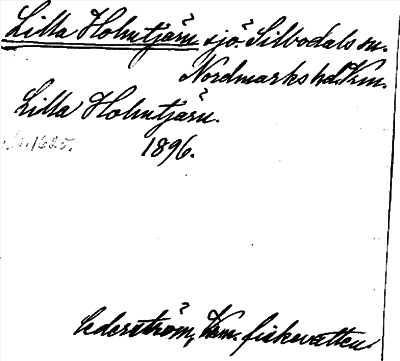 Lilla Holmtjärn sjö. Silbodals sn.
Nordmarks hd. Vrm.
Lilla Holmtjärn.
1896.
Cederström, Vrm. fiskevatten